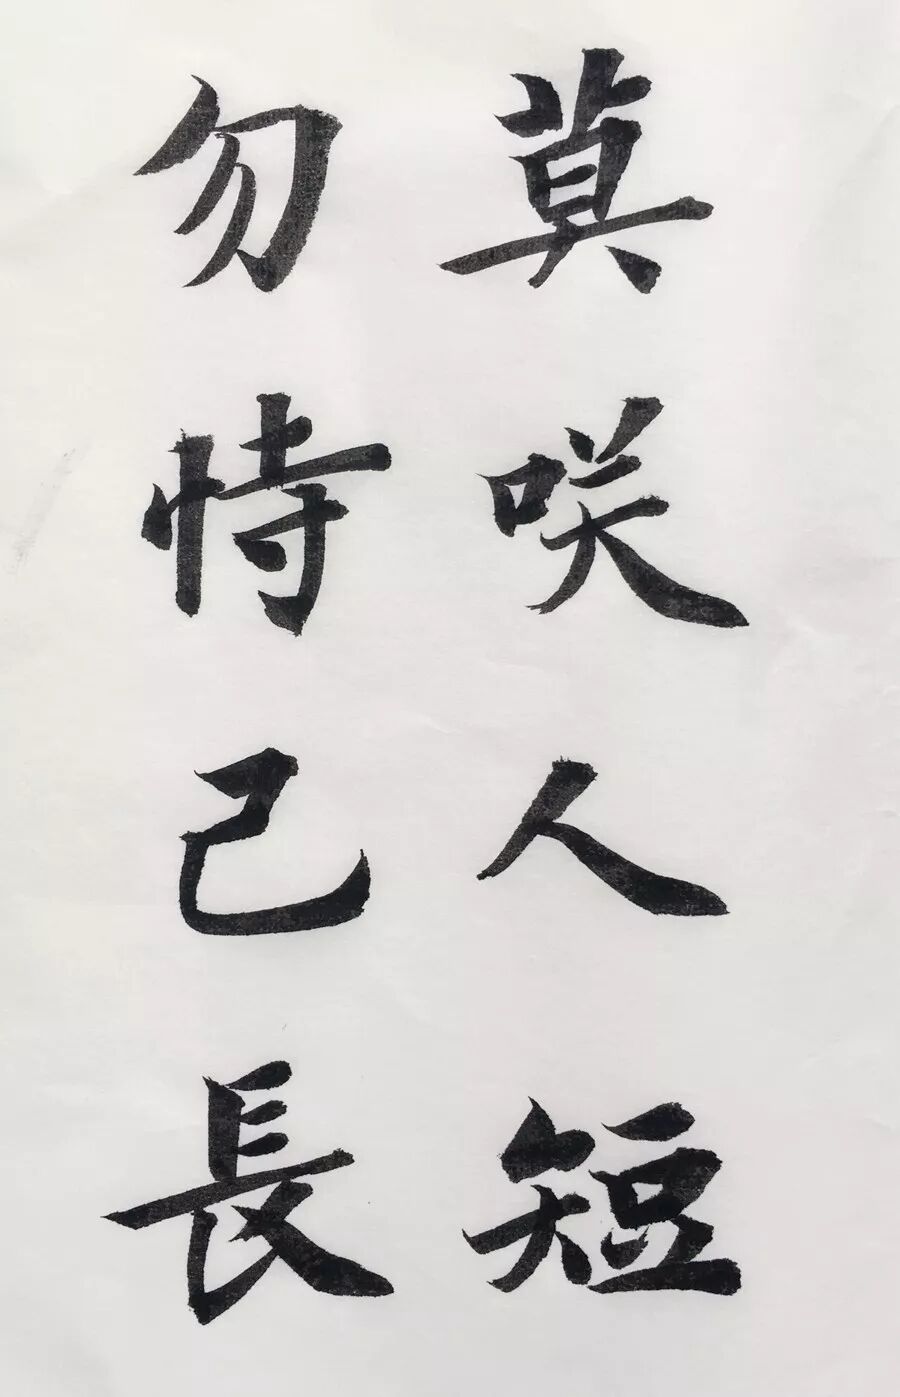 莫咲人短
勿恃己長